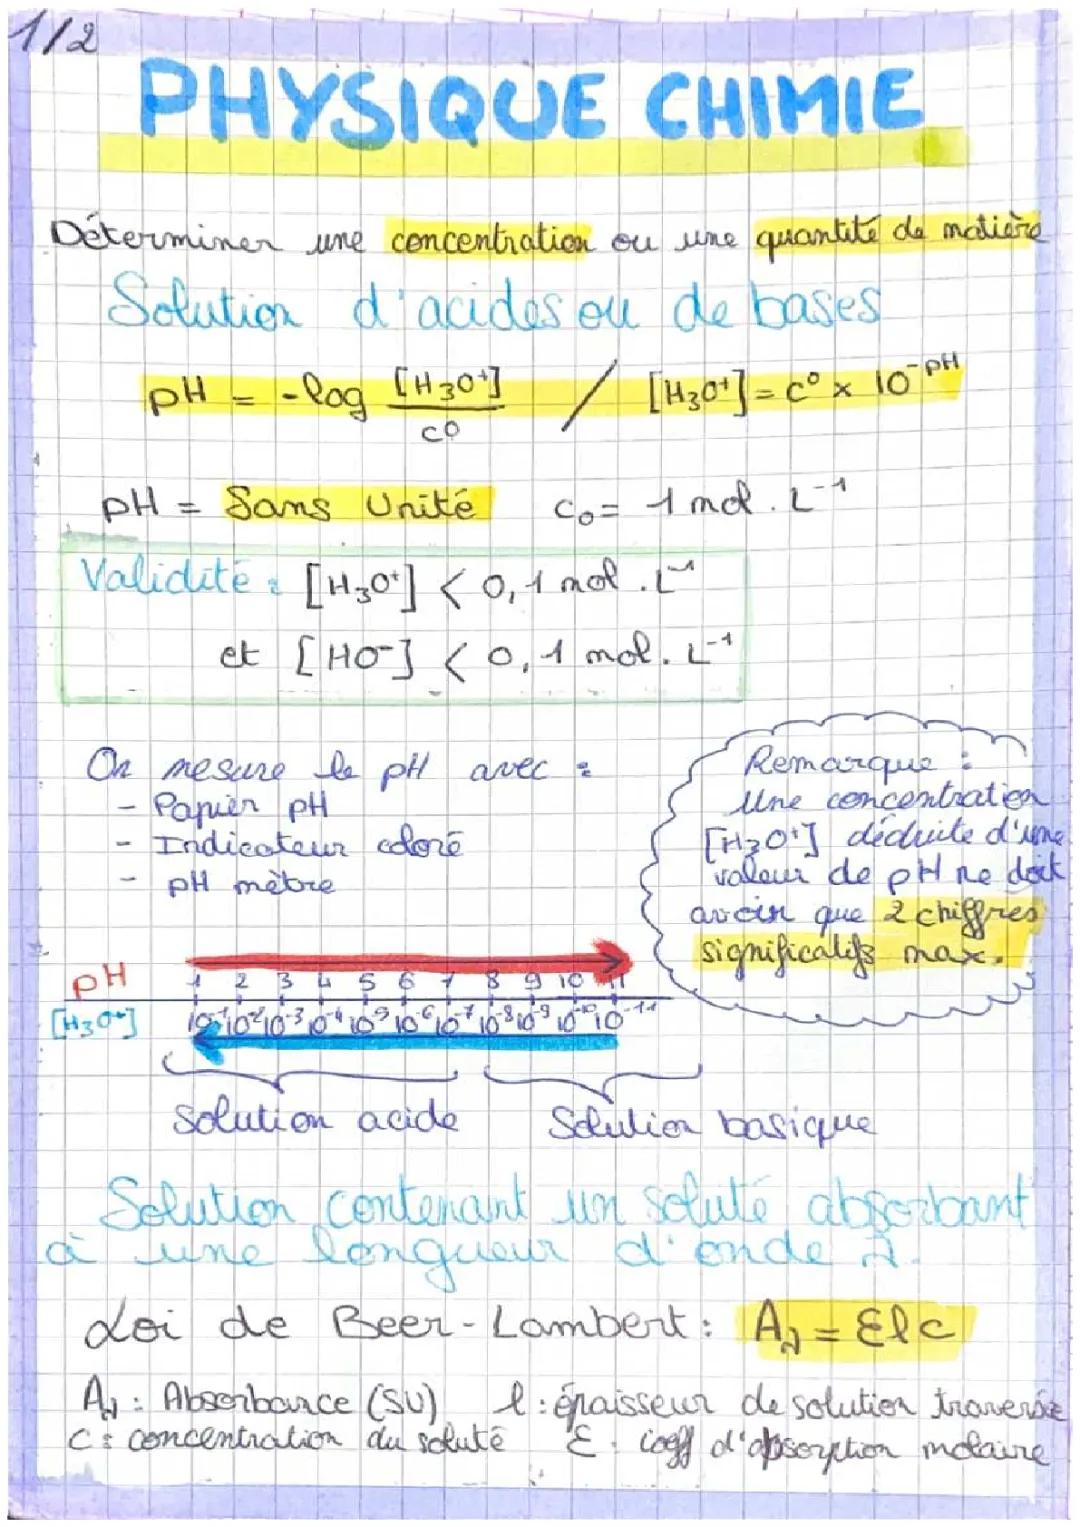 1/2
PHYSIQUE CHIMIE
Déterminer une concentration ou une quantité de matière
Solution d'acides ou de bases
pH = -log [H₃O⁺]/c⁰ / [H₃O⁺] = c⁰ × 10⁻ᵖᴴ
pH = Sans Unité c₀ = 1 mol.L⁻¹
Validité : [H₃O⁺] < 0,1 mol.L⁻¹
et [HO⁻] < 0,1 mol.L⁻¹
On mesure le pH avec :
- Papier pH
- Indicateur coloré
- pH mètre
Remarque :
Une concentration
[H₃O⁺] déduite d'une
valeur de pH ne doit
avoir que 2 chiffres
significatifs max.
pH 1 2 3 4 5 6 7 8 9 10 11
[H₃O⁺] 10⁻¹ 10⁻² 10⁻³ 10⁻⁴ 10⁻⁵ 10⁻⁶ 10⁻⁷ 10⁻⁸ 10⁻⁹ 10⁻¹⁰ 10⁻¹¹
Solution acide Solution basique
Solution contenant un soluté absorbant
à une longueur d'onde λ.
Loi de Beer-Lambert : A_λ = Ɛlc
A_λ : Absorbance (SU) l : épaisseur de solution traversée
C : concentration du soluté Ɛ : coeff d'absorption molaire